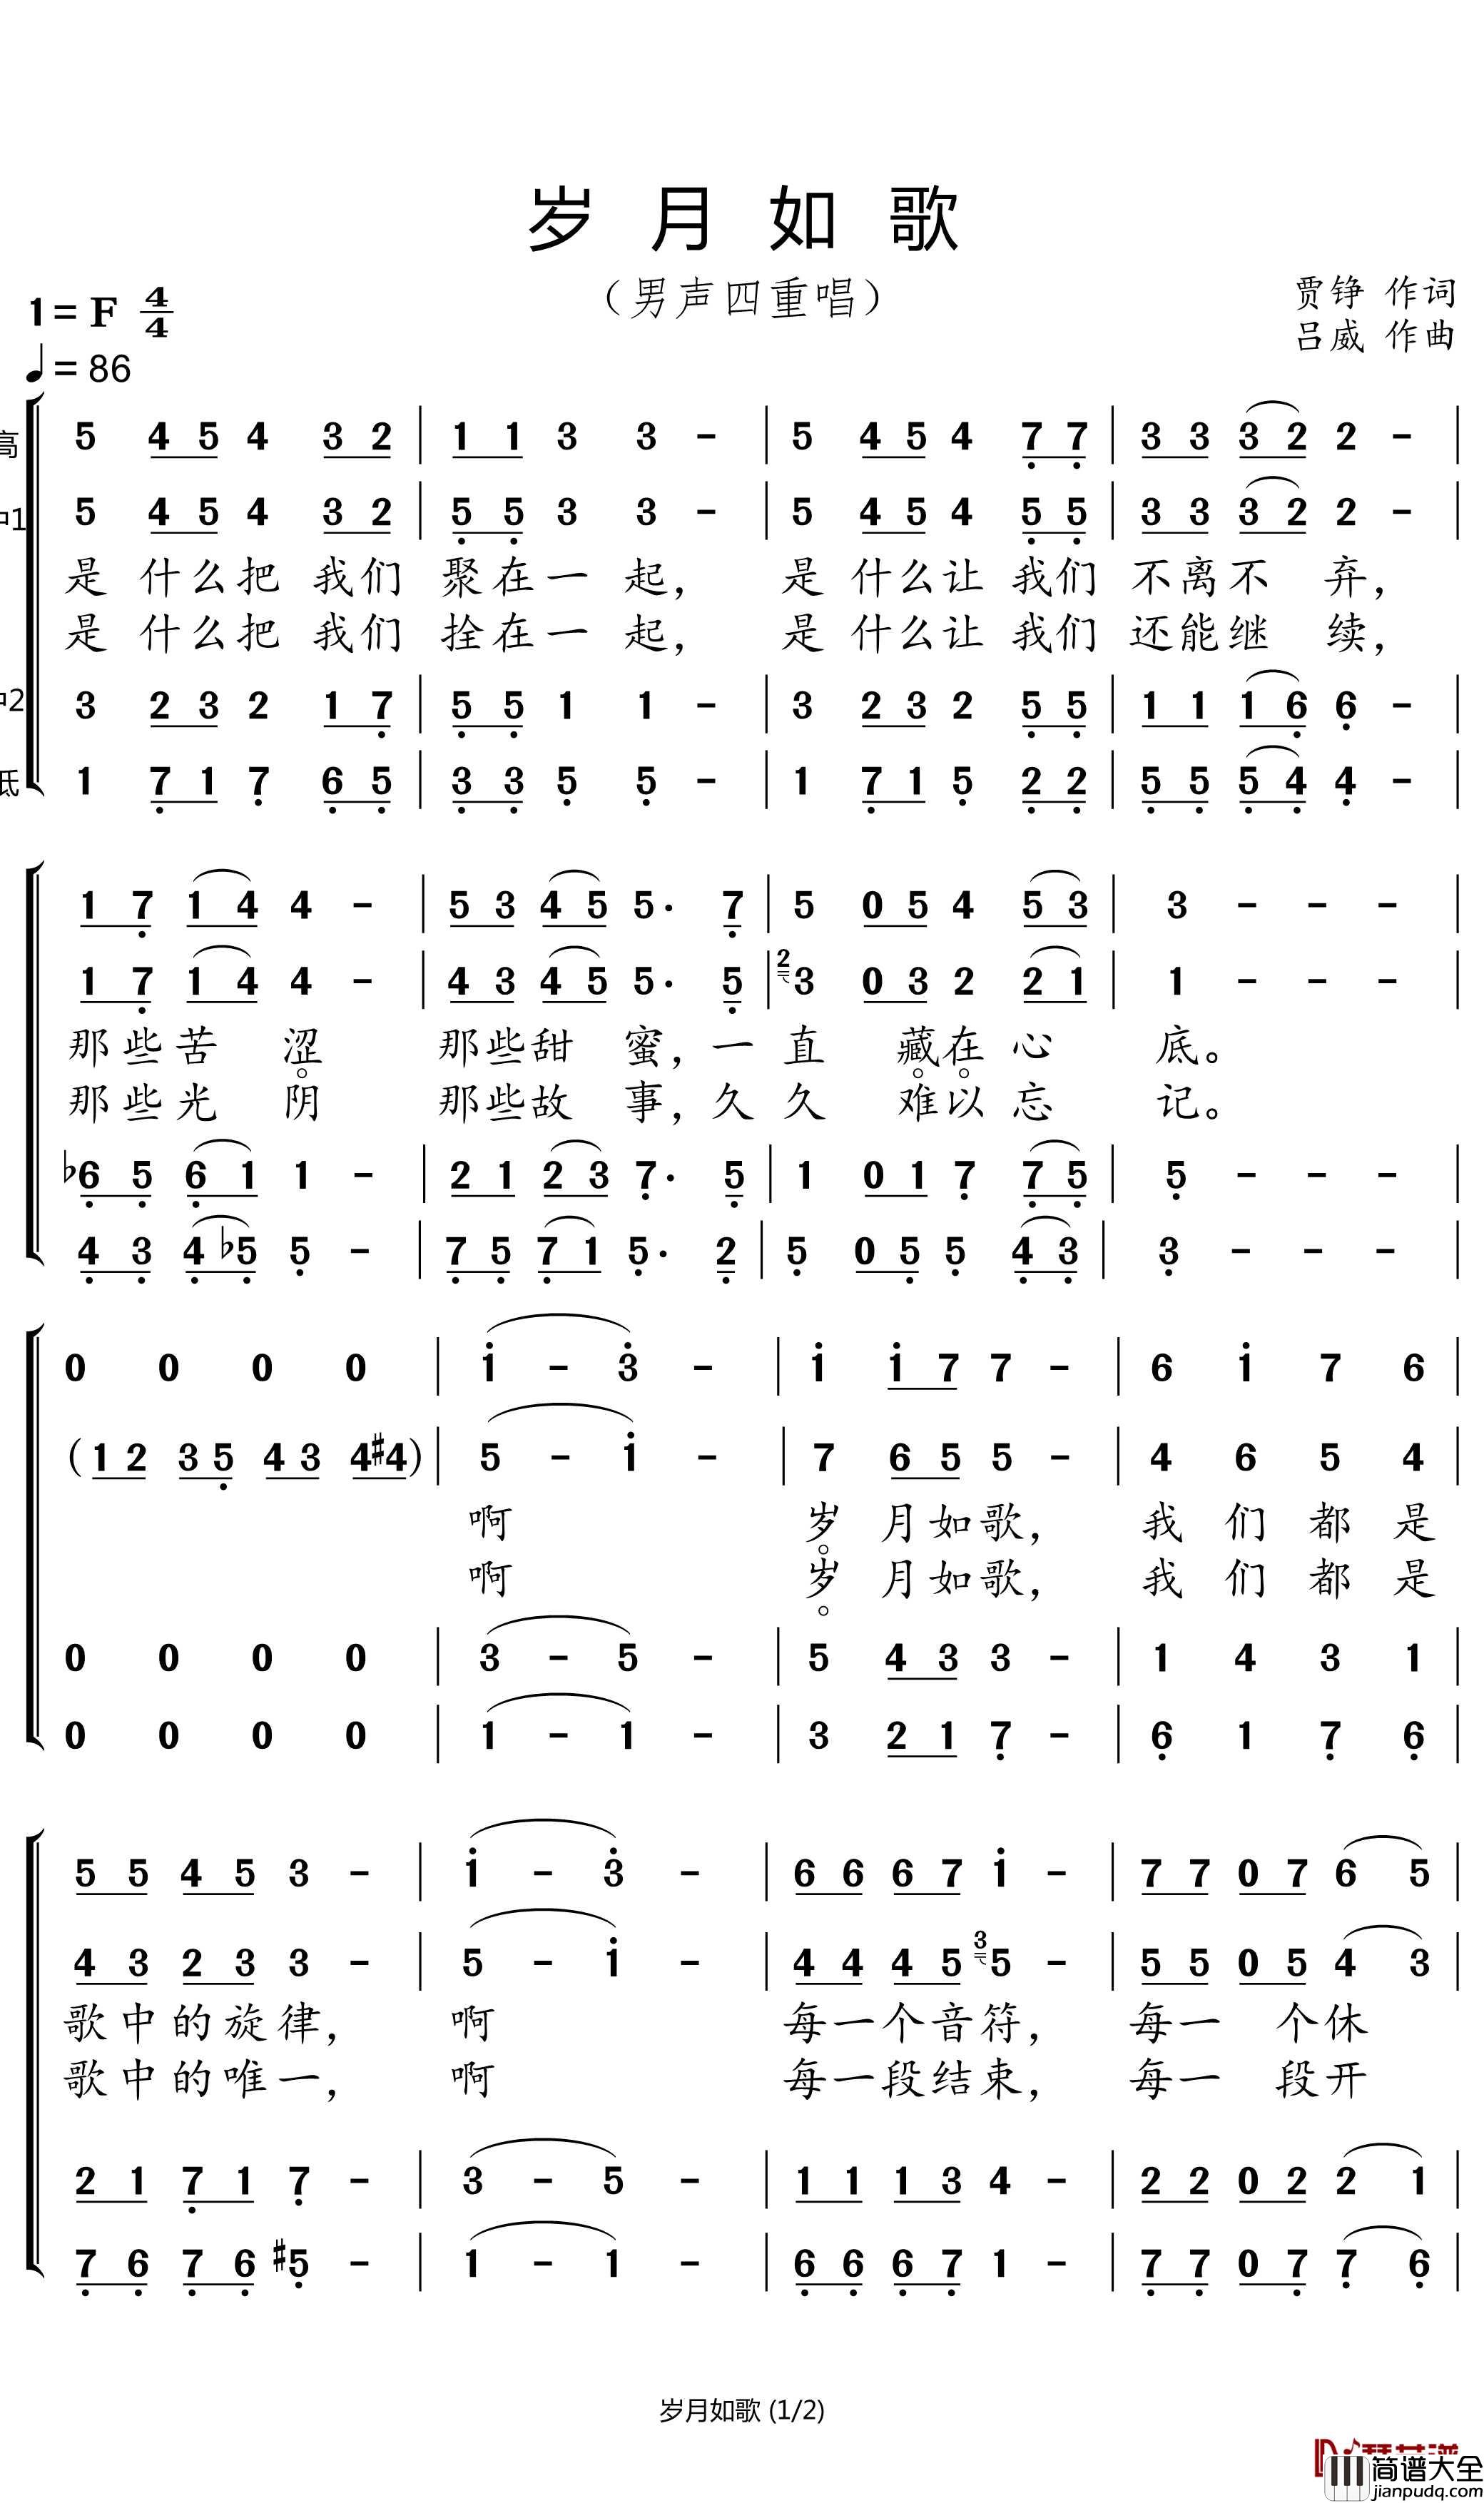 岁月如歌
（男声四重唱）
贾铮 作词
吕威 作曲
1=F 4/4
♩=86
高 5 4 5 4 3 2 | 1 1 3 3 - | 5 4 5 4 7 7 | 3 3 3 2 2 - |
1 5 4 5 4 3 2 | 5 5 3 3 - | 5 4 5 4 5 5 | 3 3 3 2 2 - |
是什么把我们聚在一起，是什么让我们不离不弃，
是什么把我们拴在一起，是什么让我们还能继续，
2 3 2 3 2 1 7 | 5 5 1 1 - | 3 2 3 2 5 5 | 1 1 1 6 6 - |
1 7 1 7 6 5 | 3 3 5 5 - | 1 7 1 5 2 2 | 5 5 5 4 4 - |
1 7 1 4 4 - | 5 3 4 5 5. 7 | 5 0 5 4 5 3 | 3 - - - |
1 7 1 4 4 - | 4 3 4 5 5. 5 | 2 3 0 3 2 2 1 | 1 - - - |
那些苦涩 那些甜蜜，一直藏在心底。
那些光阴 那些故事，久久难以忘记。
♭6 5 6 1 1 - | 2 1 2 3 7. 5 | 1 0 1 7 7 5 | 5 - - - |
4 3 4 ♭5 5 - | 7 5 7 1 5. 2 | 5 0 5 5 4 3 | 3 - - - |
0 0 0 0 | i - 3 - | i i 7 7 - | 6 i 7 6 |
(1 2 3 5 4 3 4 #4) | 5 - i - | 7 6 5 5 - | 4 6 5 4 |
啊 岁月如歌，我们都是
啊 岁月如歌，我们都是
0 0 0 0 | 3 - 5 - | 5 4 3 3 - | 1 4 3 1 |
0 0 0 0 | 1 - 1 - | 3 2 1 7 - | 6 1 7 6 |
5 5 4 5 3 - | i - 3 - | 6 6 6 7 i - | 7 7 0 7 6 5 |
4 3 2 3 3 - | 5 - i - | 4 4 4 5 3 5 - | 5 5 0 5 4 3 |
歌中的旋律，啊 每一个音符，每一 个休
歌中的唯一，啊 每一段结束，每一 段开
2 1 7 1 7 - | 3 - 5 - | 1 1 1 3 4 - | 2 2 0 2 2 1 |
7 6 7 6 #5 - | 1 - 1 - | 6 6 6 7 1 - | 7 7 0 7 7 6 |
岁月如歌 (1/2)
简谱大全
jianpudq.com